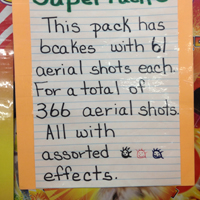 This pack has
6cakes with 61
aerial shots each.
For a total of
366 aerial shots.
All with
assorted
effects.